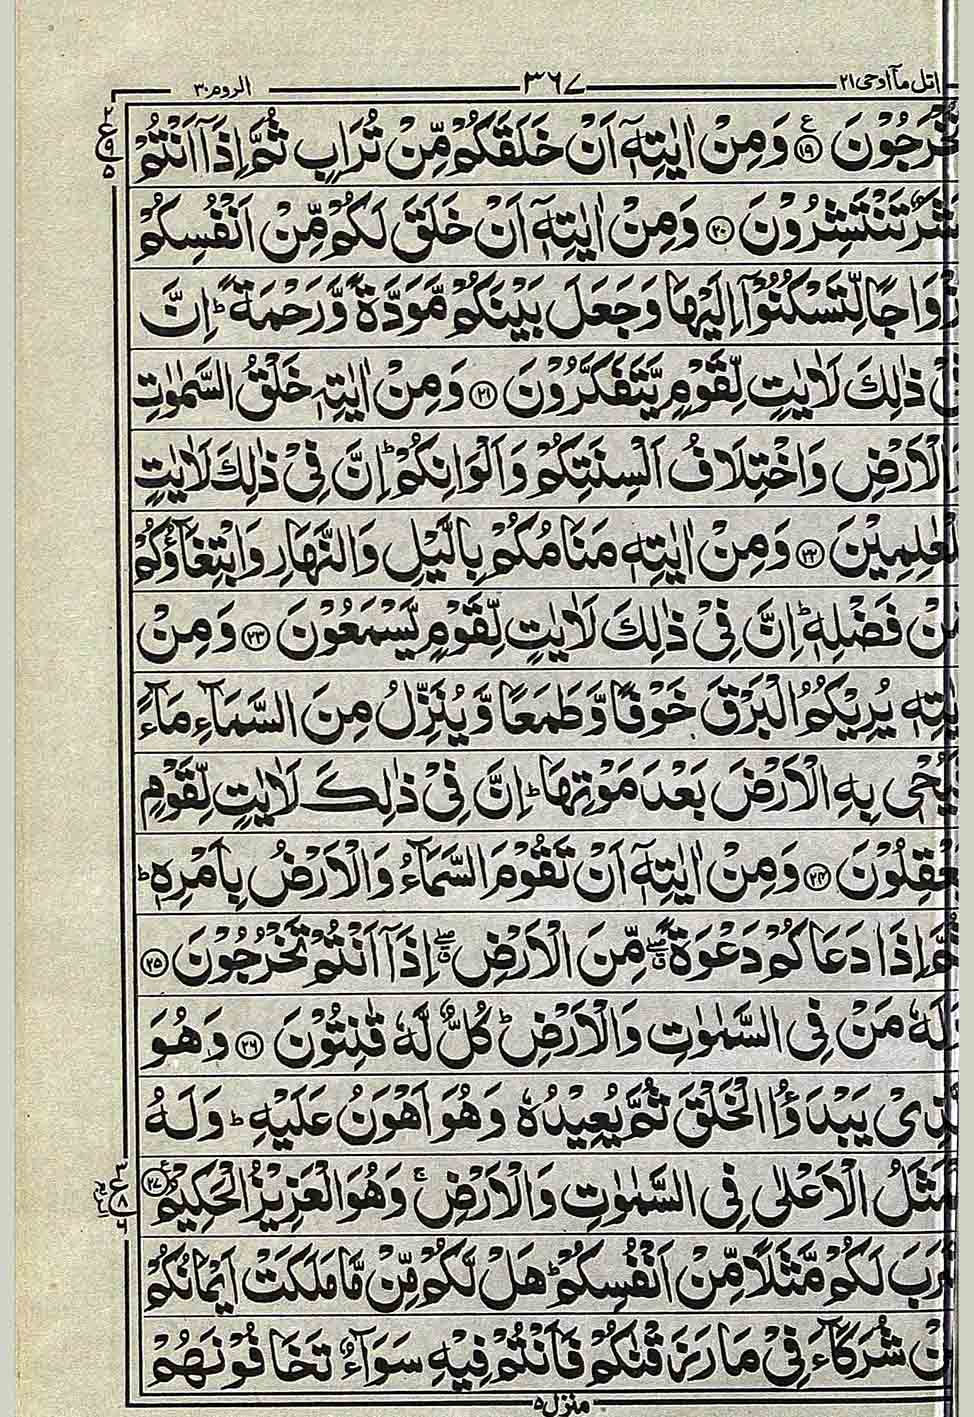 اتل مآ اوحی ۲۱ ۳۶۷ الروم ۳۰
تُخْرَجُوْنَ ۱۹ وَمِنْ اٰيٰتِهٖۤ اَنْ خَلَقَكُمْ مِّنْ تُرَابٍ ثُمَّ اِذَاۤ اَنْتُمْ
بَشَرٌ تَنْتَشِرُوْنَ ۲۰ وَمِنْ اٰيٰتِهٖۤ اَنْ خَلَقَ لَكُمْ مِّنْ اَنْفُسِكُمْ
اَزْوَاجًا لِّتَسْكُنُوْۤا اِلَيْهَا وَجَعَلَ بَيْنَكُمْ مَّوَدَّةً وَّرَحْمَةً ؕ اِنَّ
فِيْ ذٰلِكَ لَاٰيٰتٍ لِّقَوْمٍ يَّتَفَكَّرُوْنَ ۲۱ وَمِنْ اٰيٰتِهٖ خَلْقُ السَّمٰوٰتِ
وَالْاَرْضِ وَاخْتِلَافُ اَلْسِنَتِكُمْ وَاَلْوَانِكُمْ ؕ اِنَّ فِيْ ذٰلِكَ لَاٰيٰتٍ
لِّلْعٰلِمِيْنَ ۲۲ وَمِنْ اٰيٰتِهٖ مَنَامُكُمْ بِالَّيْلِ وَالنَّهَارِ وَابْتِغَآؤُكُمْ
مِّنْ فَضْلِهٖ ؕ اِنَّ فِيْ ذٰلِكَ لَاٰيٰتٍ لِّقَوْمٍ يَّسْمَعُوْنَ ۲۳ وَمِنْ
اٰيٰتِهٖ يُرِيْكُمُ الْبَرْقَ خَوْفًا وَّطَمَعًا وَّيُنَزِّلُ مِنَ السَّمَآءِ مَآءً
فَيُحْيٖ بِهِ الْاَرْضَ بَعْدَ مَوْتِهَا ؕ اِنَّ فِيْ ذٰلِكَ لَاٰيٰتٍ لِّقَوْمٍ
يَّعْقِلُوْنَ ۲۴ وَمِنْ اٰيٰتِهٖۤ اَنْ تَقُوْمَ السَّمَآءُ وَالْاَرْضُ بِاَمْرِهٖ ؕ
ثُمَّ اِذَا دَعَاكُمْ دَعْوَةً ۖ مِّنَ الْاَرْضِ ۖ اِذَاۤ اَنْتُمْ تَخْرُجُوْنَ ۲۵
وَلَهٗ مَنْ فِي السَّمٰوٰتِ وَالْاَرْضِ ؕ كُلٌّ لَّهٗ قٰنِتُوْنَ ۲۶ وَهُوَ
الَّذِيْ يَبْدَؤُا الْخَلْقَ ثُمَّ يُعِيْدُهٗ وَهُوَ اَهْوَنُ عَلَيْهِ ؕ وَلَهُ
الْمَثَلُ الْاَعْلٰى فِي السَّمٰوٰتِ وَالْاَرْضِ ۚ وَهُوَ الْعَزِيْزُ الْحَكِيْمُ ۲۷
ضَرَبَ لَكُمْ مَّثَلًا مِّنْ اَنْفُسِكُمْ ؕ هَلْ لَّكُمْ مِّنْ مَّا مَلَكَتْ اَيْمَانُكُمْ
مِّنْ شُرَكَآءَ فِيْ مَا رَزَقْنٰكُمْ فَاَنْتُمْ فِيْهِ سَوَآءٌ تَخَافُوْنَهُمْ
منزل ۵